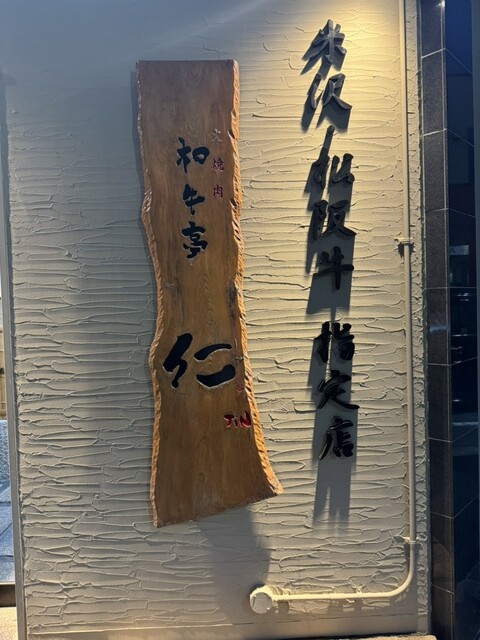 米沢・松阪牛指定店
炭焼肉
和牛亭
仁
JIN